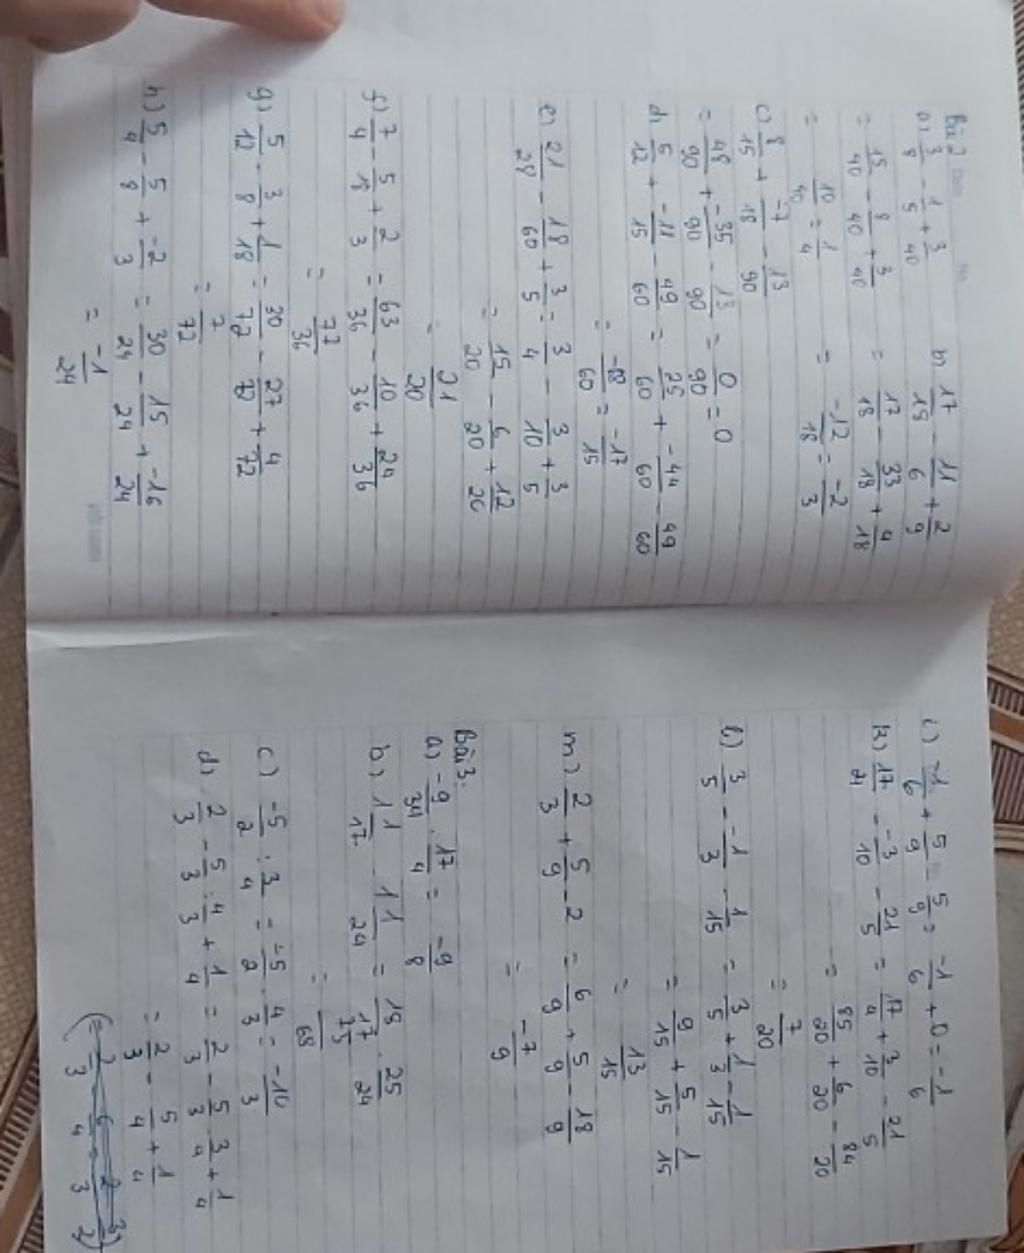 Bài 2
a) 3/8 - 1/5 + 3/40
= 15/40 - 8/40 + 3/40
= 10/40 = 1/4
b) 17/15 - 11/6 + 2/9
= 17/18 - 33/18 + 4/18
= -12/18 = -2/3
c) 8/15 + -7/18 - 13/90
= 48/90 + -35/90 - 13/90 = 0/90 = 0
d) 5/12 + -11/15 - 49/60 = 25/60 + -44/60 - 49/60
= -68/60 = -17/15
e) 21/28 - 18/60 + 3/5 = 3/4 - 3/10 + 3/5
= 15/20 - 6/20 + 12/20
= 21/20
f) 7/4 - 5/18 + 2/3 = 63/36 - 10/36 + 24/36
= 77/36
g) 5/12 - 3/8 + 1/18 = 30/72 - 27/72 + 4/72
= 7/72
h) 5/4 - 5/8 + -2/3 = 30/24 - 15/24 + -16/24
= -1/24
i) -1/6 + 5/9 - 5/9 = -1/6 + 0 = -1/6
k) 17/4 - -3/10 - 21/5 = 17/4 + 3/10 - 21/5
= 85/20 + 6/20 - 84/20
= 7/20
l) 3/5 - -1/3 - 1/15 = 3/5 + 1/3 - 1/15
= 9/15 + 5/15 - 1/15
= 13/15
m) 2/3 + 5/9 - 2 = 6/9 + 5/9 - 18/9
= -7/9
Bài 3:
a) -9/34 . 17/4 = -9/8
b) 1 1/17 . 1 1/24 = 18/17 . 25/24
= 75/68
c) -5/2 : 3/4 = -5/2 . 4/3 = -10/3
d) 2/3 - 5/3 : 4/3 + 1/4 = 2/3 - 5/3 . 3/4 + 1/4
= 2/3 - 5/4 + 1/4